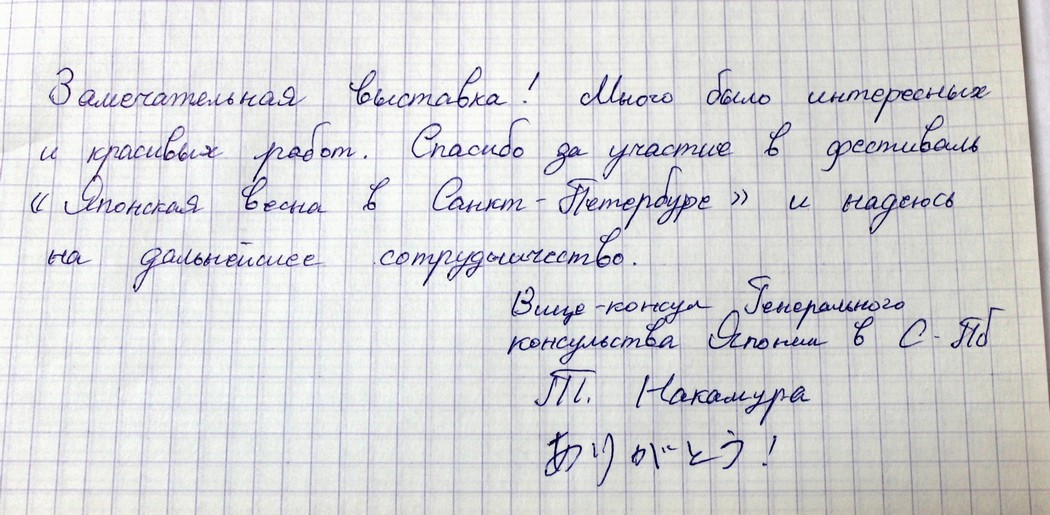 Замечательная выставка! Много было интересных
и красивых работ. Спасибо за участие в фестиваль
«Японская весна в Санкт-Петербурге» и надеюсь
на дальнейшее сотрудничество.
Вице-консул Генерального
консульства Японии в С-Пб
Т. Накамура
ありがとう!